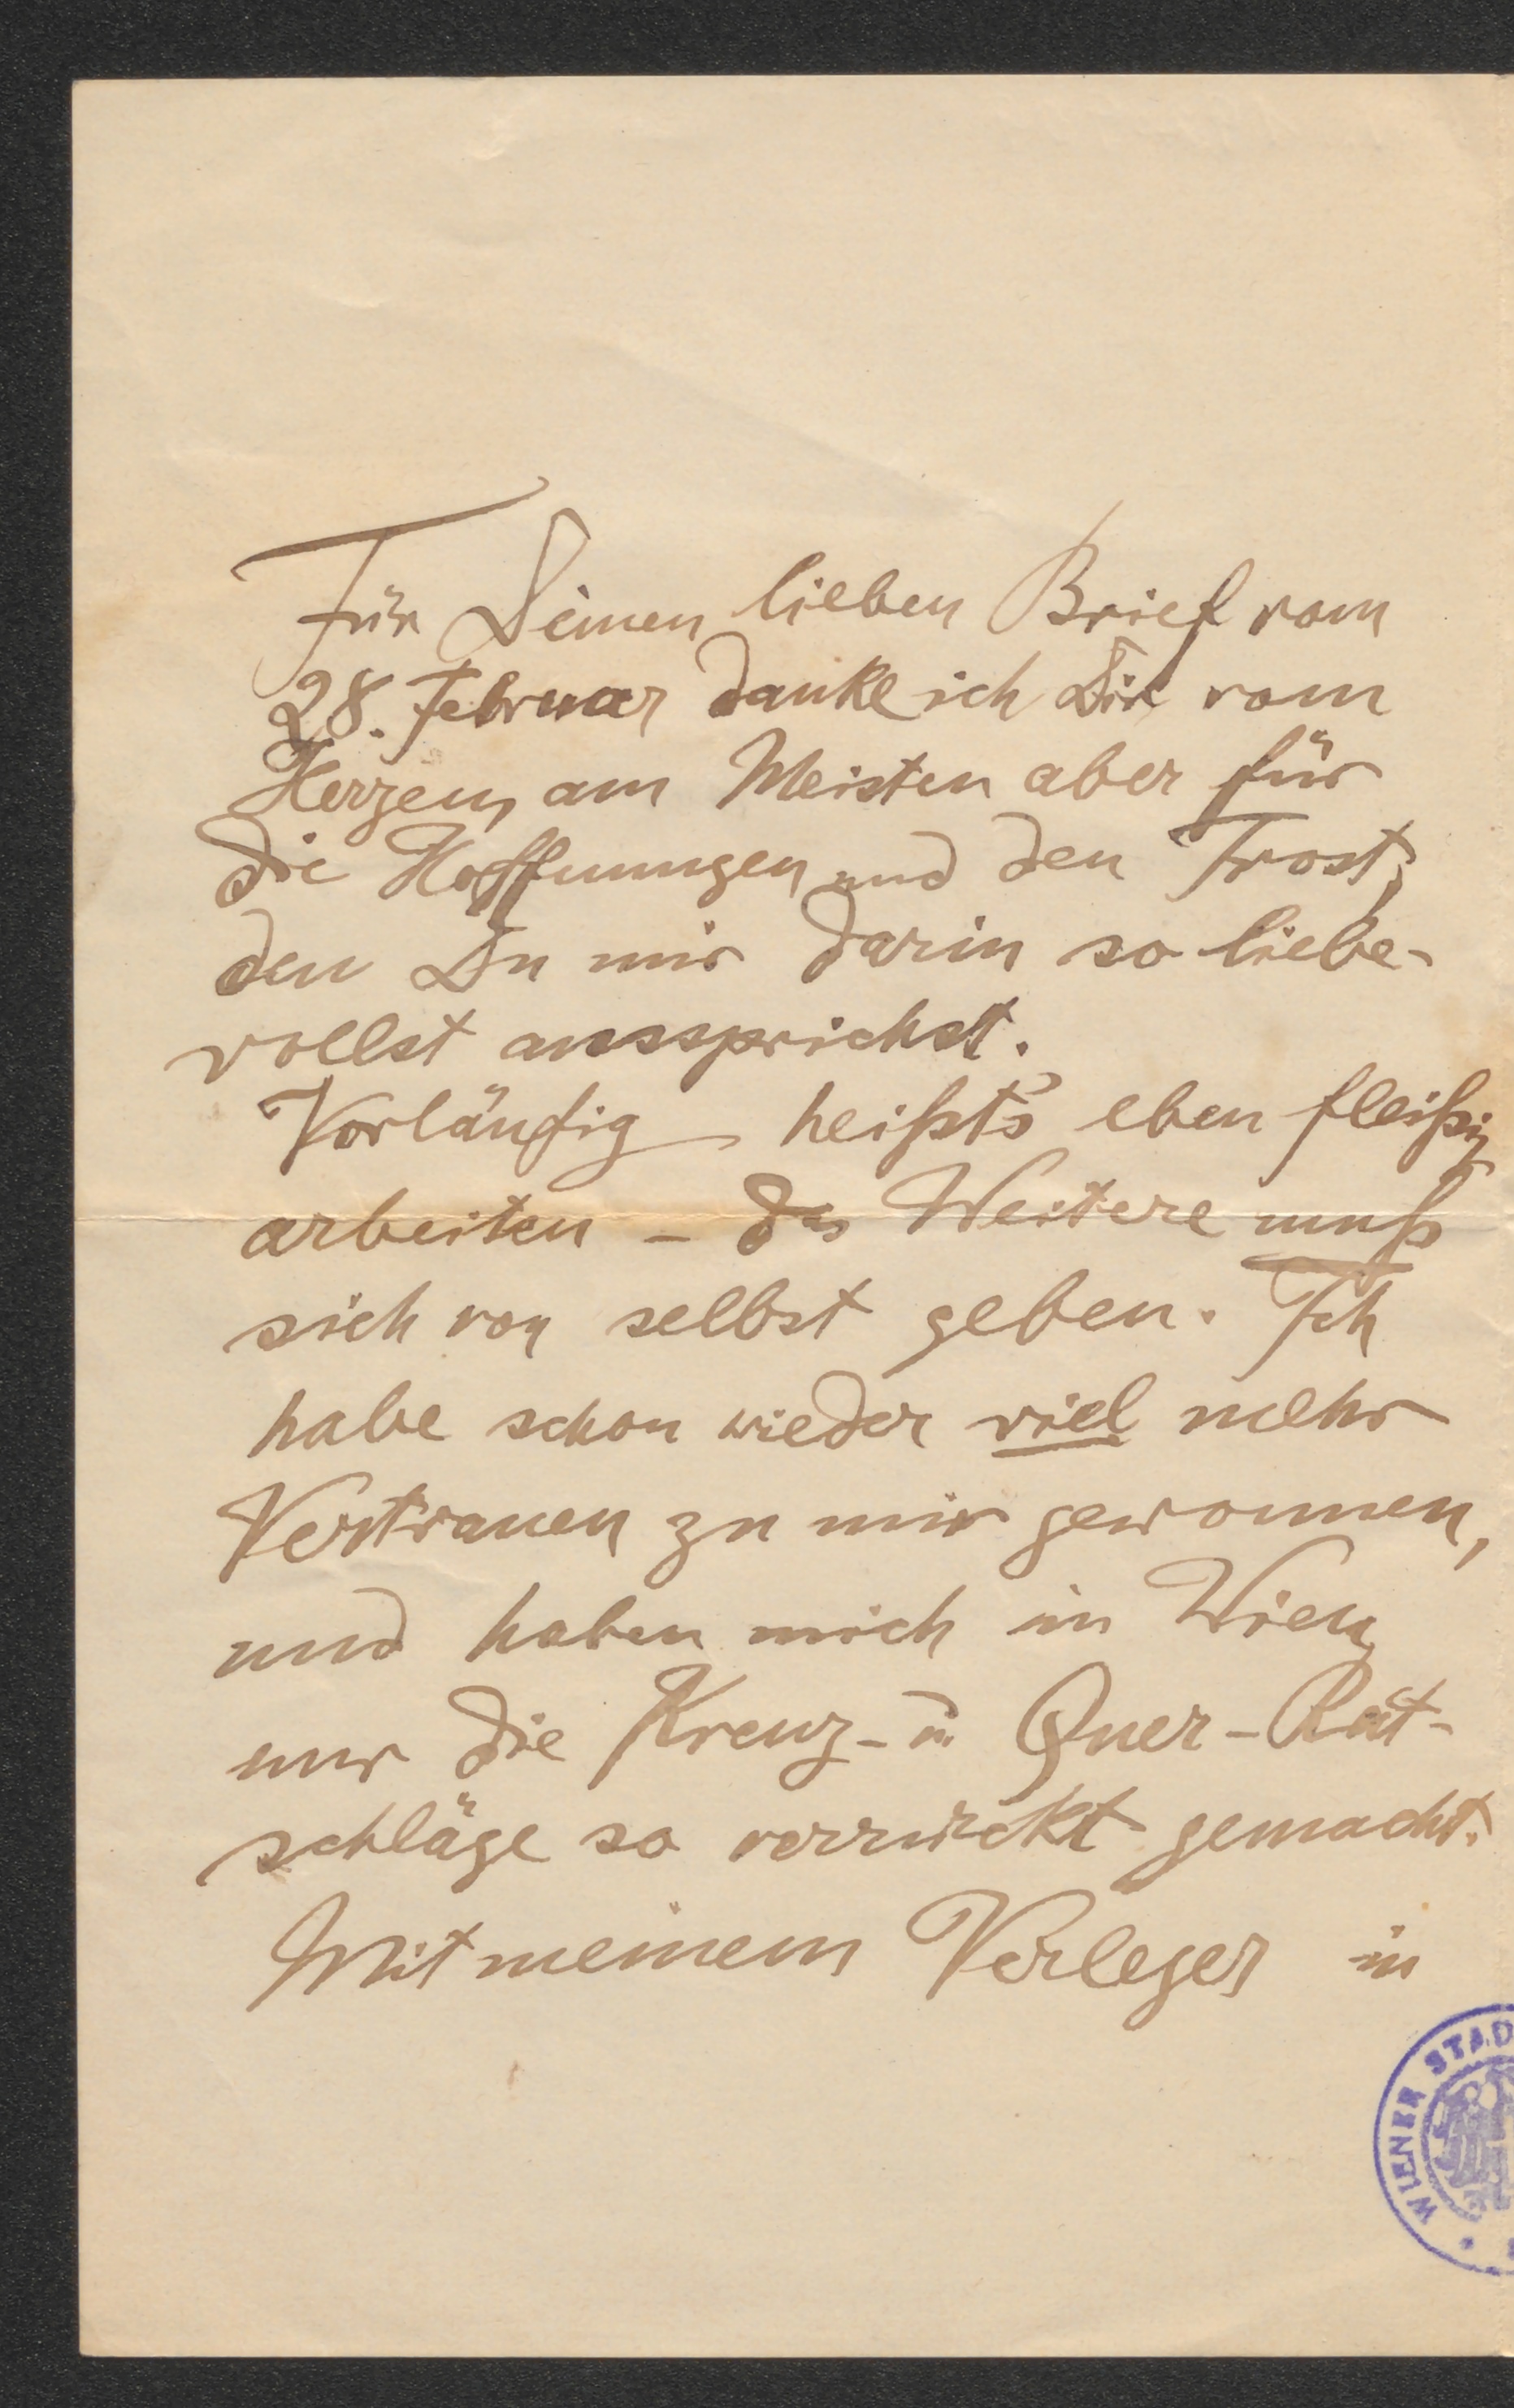 Für Deinen lieben Brief vom
28. Februar danke ich Dir vom
Herzen, am Meisten aber für
die Hoffnungen und den Trost,
den Du mir darin so liebe-
vollst aussprichst.
Vorläufig heißt's eben fleißig
arbeiten - das Weitere muß
sich von selbst geben. Ich
habe schon wieder viel mehr
Vertrauen zu mir gewonnen,
und haben mich in Wien
nur die Kreuz- u. Quer-Rat-
schläge so verrückt gemacht.
Mit meinem Verleger in
WIENER STAD